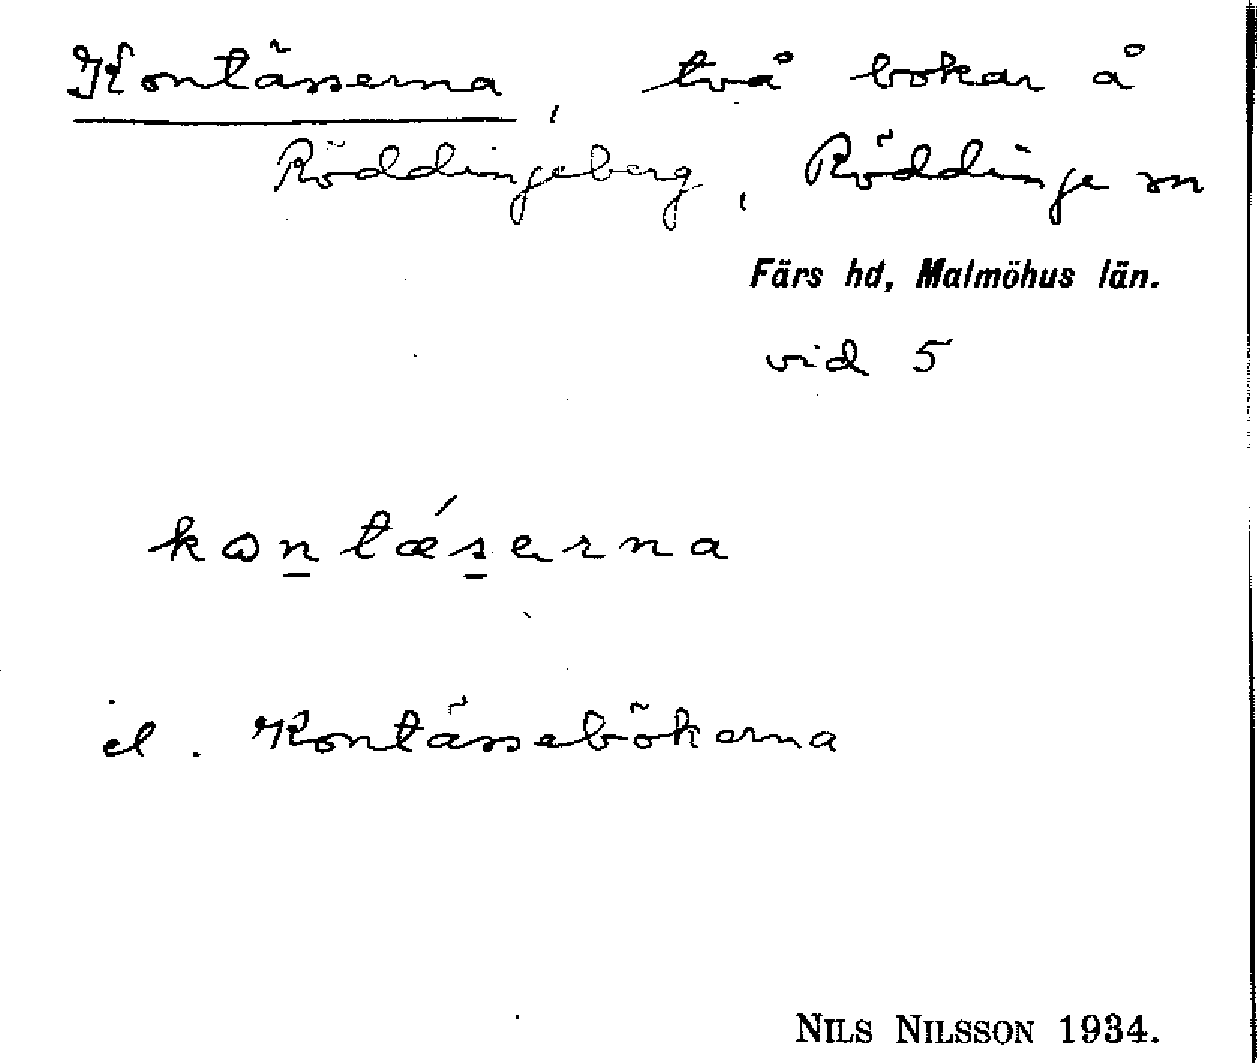 Kontässerna, två bokar å
Röddingeberg, Röddinge sn
Färs hd, Malmöhus län.
vid 5
kontǽserna
el. Kontässebökerna
NILS NILSSON 1934.